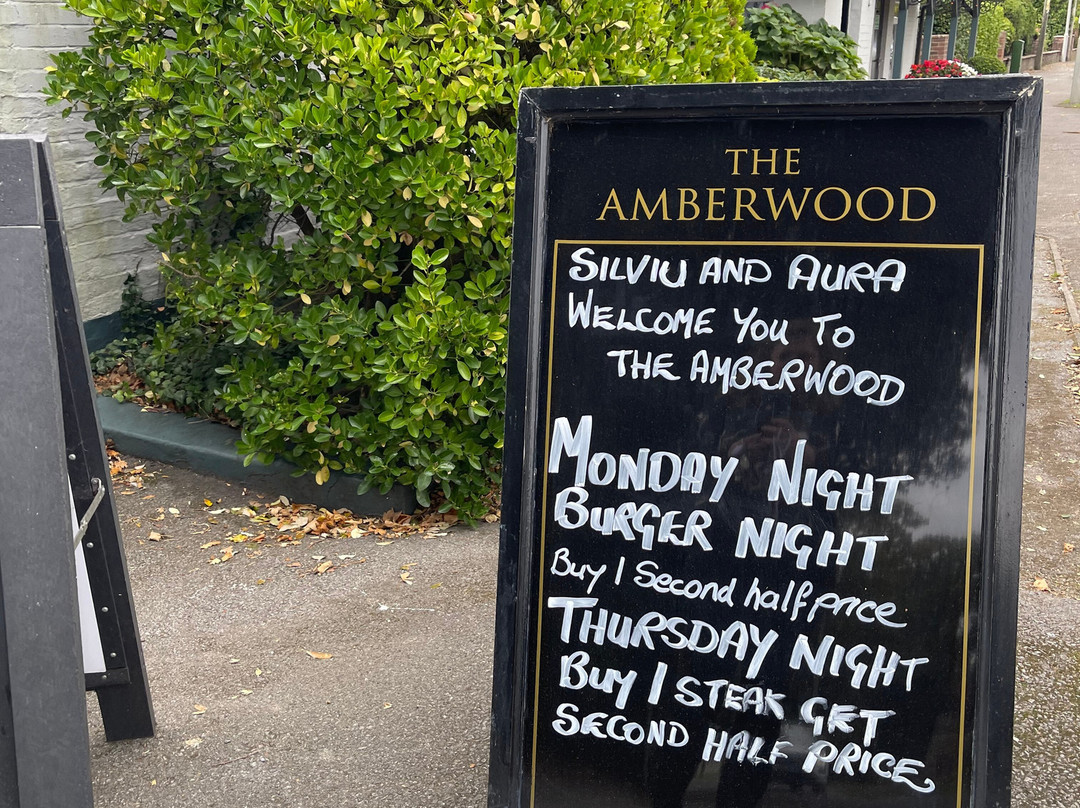 THE
AMBERWOOD
SILVIU AND AURA
WELCOME YOU TO
THE AMBERWOOD
MONDAY NIGHT
BURGER NIGHT
Buy 1 Second half price
THURSDAY NIGHT
Buy 1 STEAK GET
SECOND HALF PRICE